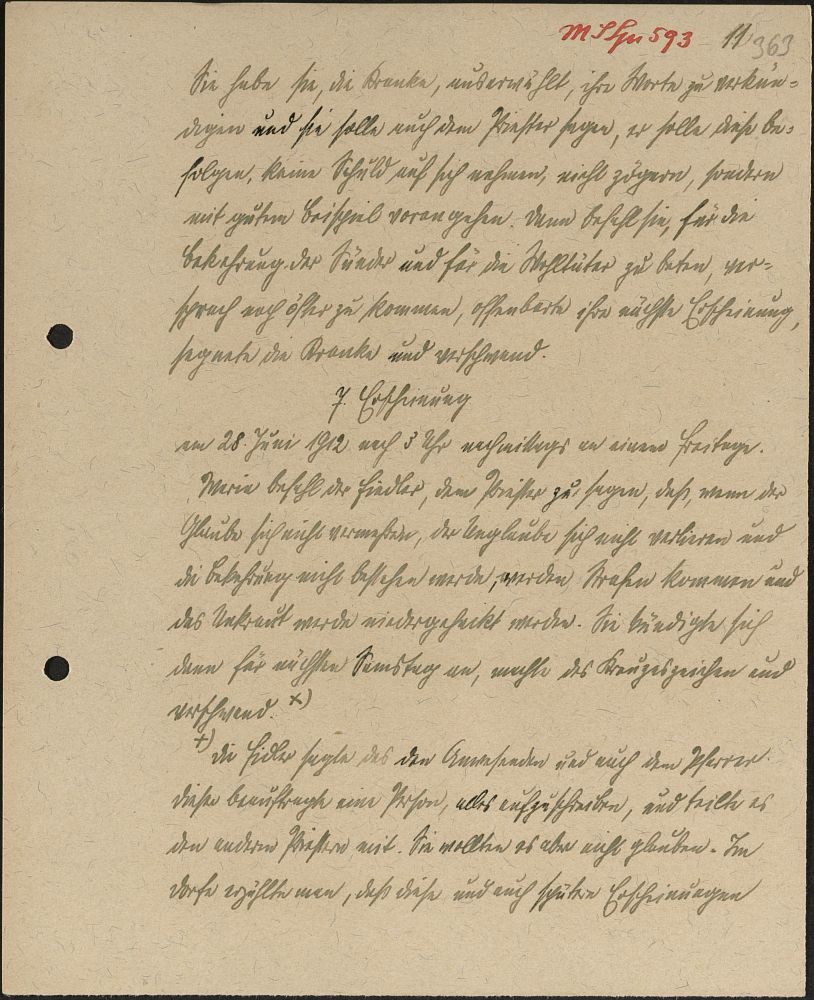 MS Gen 593 11 363
Sie habe sie, die Kranke, auserwählt, ihre Worte zu verkün-
digen und sie solle auch dem Priester sagen, er solle diese be-
folgen, keine Schuld auf sich nehmen, nicht zögern, sondern
mit gutem Beispiel vorangehen. Dann befahl sie, für die
Bekehrung der Sünder und für die Wohltäter zu beten, ver-
sprach noch öfter zu kommen, offenbarte ihre nächste Erscheinung,
segnete die Kranke und verschwand.
7. Erscheinung
am 28. Juni 1912 nach 3 Uhr nachmittags an einem Freitage.
Maria befahl der Fiedler, dem Priester zu sagen, daß, wenn der
Glaube sich nicht vermehren, der Unglaube sich nicht verlieren und
die Bekehrung nicht bestehen werde, werden Strafen kommen und
das Unkraut werde niedergehackt werden. Sie kündigte sich
dann für nächsten Samstag an, machte das Kreuzeszeichen und
verschwand. x)
+) Die Fidler sagte das den Anwesenden und auch dem Pfarrer.
Dieser beauftragte eine Person, alles aufzuschreiben, und teilte es
den anderen Priestern mit. Sie wollten es aber nicht glauben. Im
Dorfe erzählte man, daß diese und auch spätere Erscheinungen